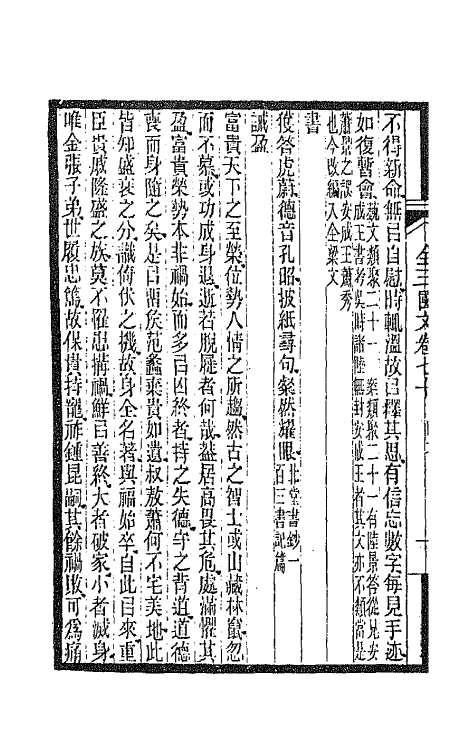 不得新命無㠯自慰時輒溫故㠯釋其思有信忘數字每見手迹
如復暫會 藝文類聚二十一 案類聚二十一有陸景答從兄安
成王書考吳時諸陸無封安成王者其文亦不類當是
蕭景之誤安成王蕭秀
也今改編入全梁文
書
彼答虎蔚德音孔昭披紙尋句粲然耀眼 北堂書鈔一
百三書記篇
誡盈
富貴天下之至榮位勢人情之所趨然古之智士或山藏林竄忽
而不慕或功成身退逝若脫屣者何哉葢居高畏其危處滿懼其
盈富貴榮勢本非禍始而多㠯凶終者持之失德守之背道道德
喪而身隨之矣是㠯留矦范蠡棄貴如遺叔敖蕭何不宅美地此
皆知盛衰之分識倚伏之機故身全名著與福始卒自此㠯來重
臣貴戚隆盛之族莫不罹患搆禍鮮㠯善終大者破家小者滅身
唯金張子弟世履忠篤故保貴持寵祚鍾昆嗣其餘禍敗可爲痛
全三國文卷七十